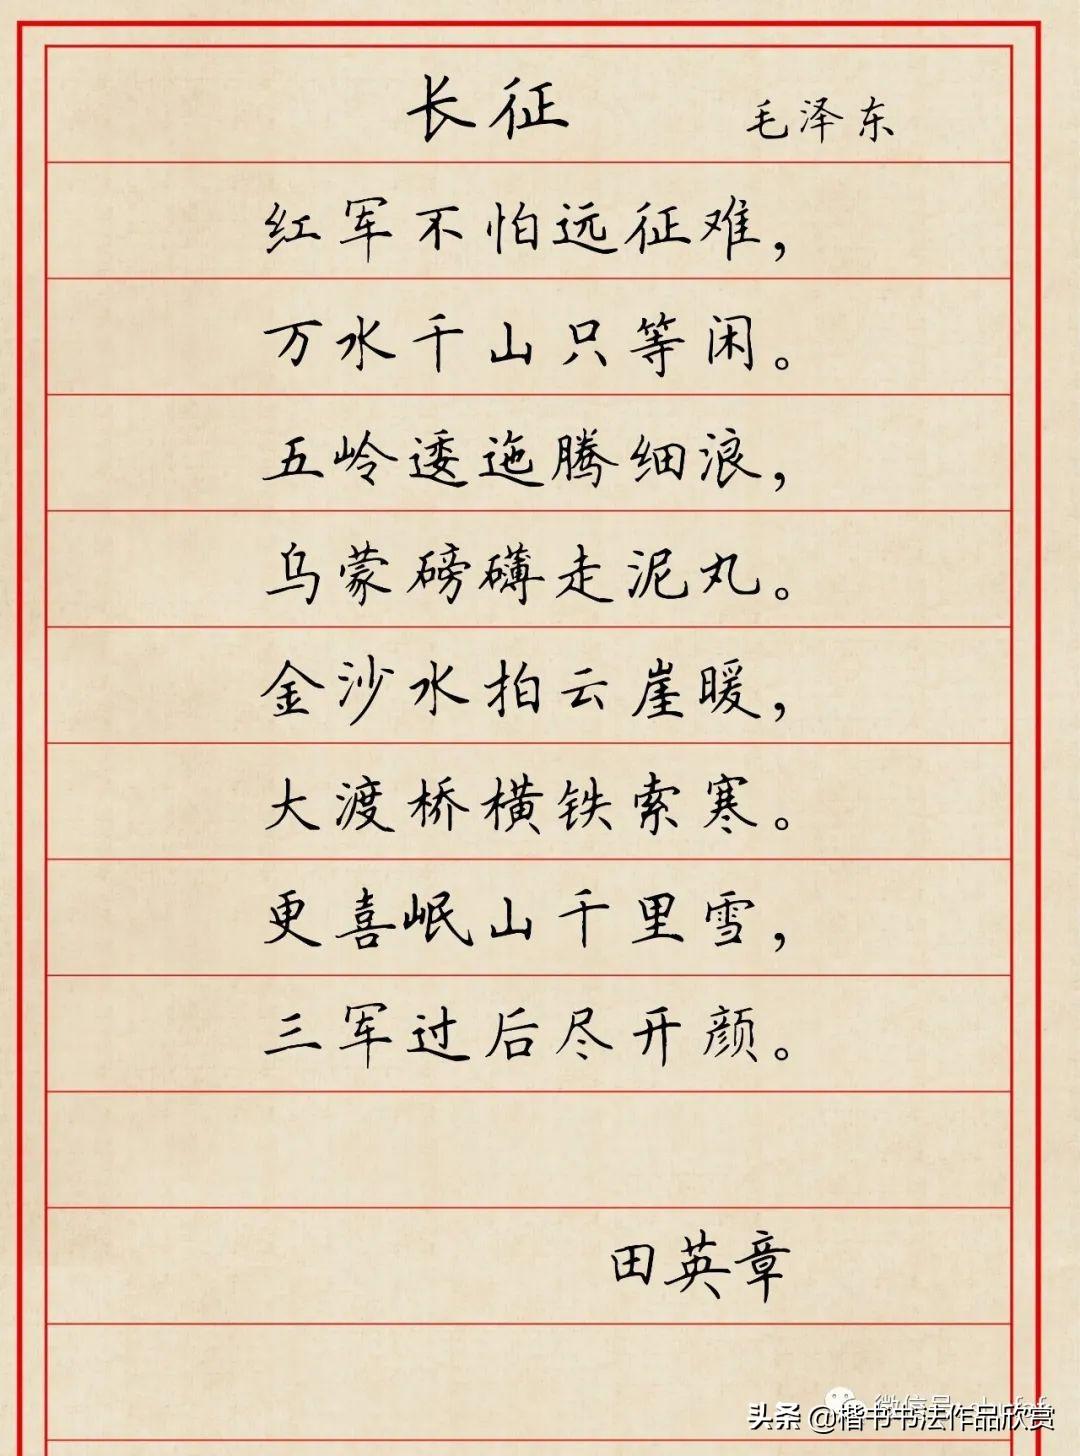 长征 毛泽东
红军不怕远征难，
万水千山只等闲。
五岭逶迤腾细浪，
乌蒙磅礴走泥丸。
金沙水拍云崖暖，
大渡桥横铁索寒。
更喜岷山千里雪，
三军过后尽开颜。
田英章
微信号
头条 @楷书书法作品欣赏